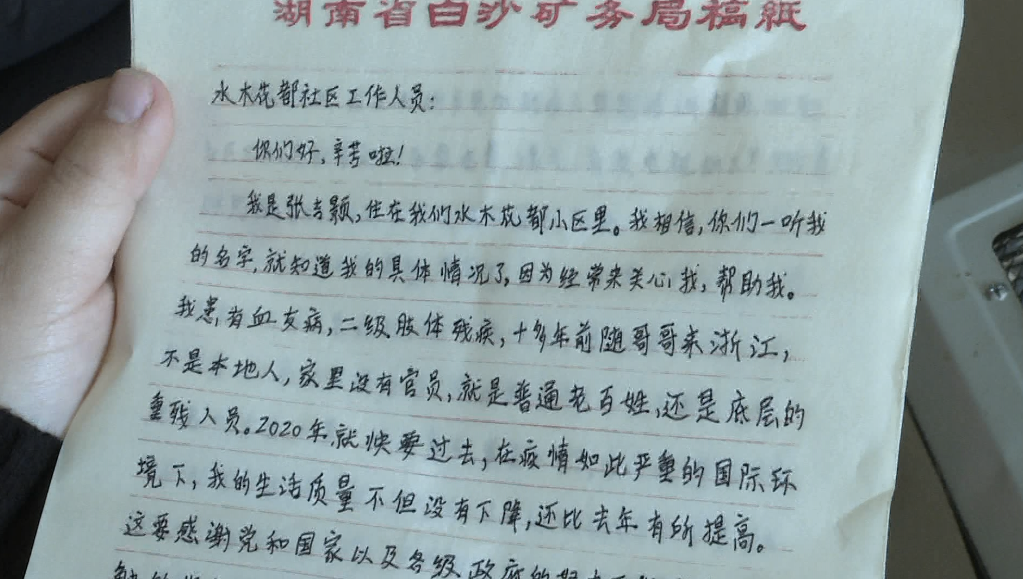 湖南省白沙矿务局稿紙
水木花都社区工作人员:
你们好,辛苦啦!
我是张吉颖,住在我们水木花都小区里。我相信,你们一听我
的名字,就知道我的具体情况了,因为经常来关心我,帮助我。
我患有血友病,二级肢体残疾,十多年前随哥哥来浙江,
不是本地人,家里没有官员,就是普通老百姓,还是底层的
重残人员。2020年就快要过去,在疫情如此严重的国际环
境下,我的生活质量不但没有下降,还比去年有所提高。
这要感谢党和国家以及各级政府的